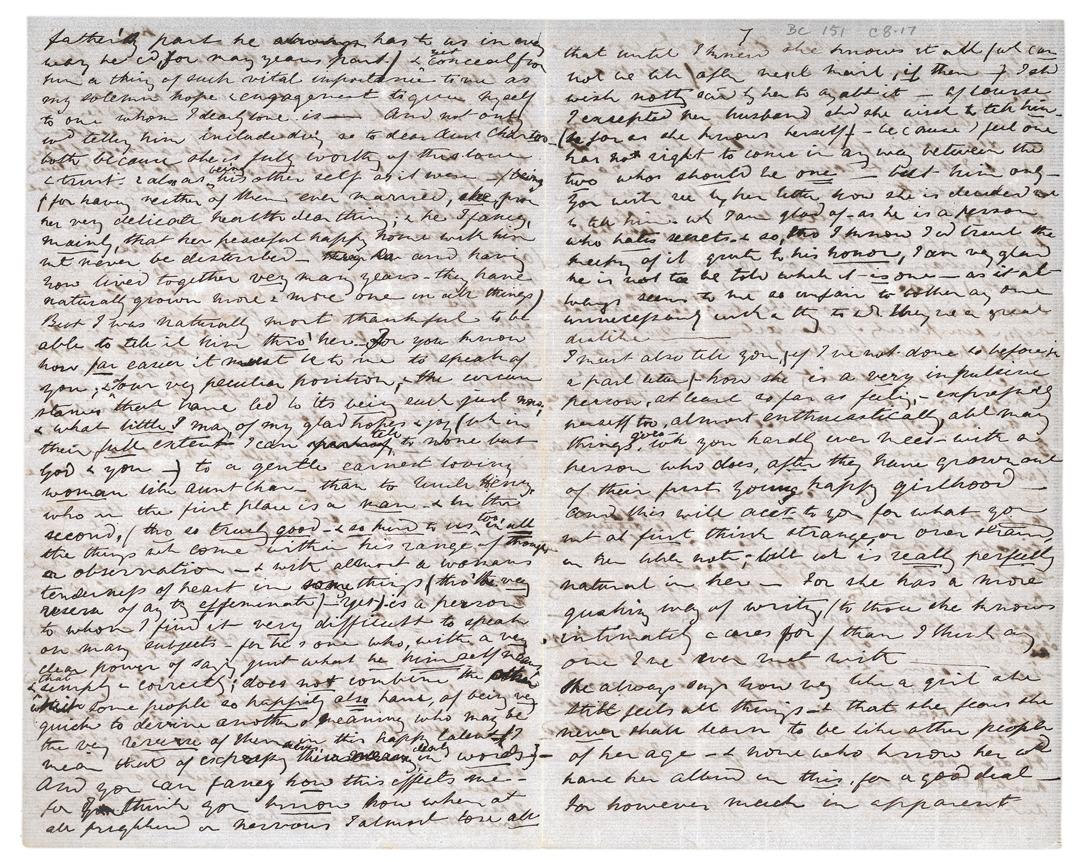 father's part he always has to us in every
way he cd, for many years past) & yet conceal from
him a thing of such vital importance to me as
my solemn hope & engagement to give myself
to one whom I dearly love is — And not only
in telling him, include dig so to dear Aunt Charlotte
both because she is fully worthy of this love
& trust. & also as being his other self as it were —
(for having neither of them ever married, she from
her very delicate health dear thing, & he I fancy,
mainly, that her peaceful happy home with him
mt never be disturbed — and having
now lived together very many years — they have
naturally grown more & more one in all things)
But I was naturally most thankful to be
able to tell it him thro' her — For you know
how far easier it must be to me to speak of
you, & our very peculiar position, & the circum
stances that have led to its being such just now,
& what little I may of my glad hopes & joy (wh in
their full extent I can tell to none but
God & you —) to a gentle earnest loving
woman like Aunt Char — than to Uncle Henry
who in the first place is a man — & in the
second, (tho so truly good — & so kind to us too, in all
the things wh come within his range of thought
or observation — & with almost a womans
tenderness of heart in some things (tho' the very
reverse of any thg effeminate) — yet) is a person
to whom I find it very difficult to speak
on many subjects — for he's one who, with a very
clear power of sayg just what he himself means
simply & correctly, does not combine the
which some people so happily also have, of being very
quick to devine another's meaning who may be
the very reverse of them in this happy talent (I
mean that of expressg their meaning clearly in words) —
And you can fancy how this effects me —
for I think you know how when at
all frightened or nervous I almost lose all
7 BC 151 C8.17
that until I knew she knows it all (wh can
not be till after next mail, if then —) I shd
wish nothg said by her to any abt it — of course
I excepted her husband shd she wish to tell him
(before as she knows herself) — because I feel one
has no right to come in any way between the
two who should be one — but him only —
You will see by her letter how she is decided not
to tell him — wh I am glad of — as he is a person
who hates secrets & so, tho I know I cd trust the
keeping of it quite to his honor, I am vy glad
he is not to be told while it is one — as it al
ways seems to me so unfair to bother any one
unnecessarily with a thg to wh they've a great
dislike —
I must also tell you, (if I've not done so before in
a past letter) how she is a very impulsive
person, at least so far as feelg, & expressg
herself too, almost enthusiastically, abt many
things goes, wh you hardly ever meet with a
person who does, after they have grown out
of their first young happy girlhood —
And this will acct to you for what you
mt at first think strange, or over strained,
in her like not, but wh is really perfectly
natural in her — For she has a more
gushing way of writing (to those she knows
intimately & cares for) than I think any
one I've ever met with —
She always says how vy like a girl she
still feels all things — & that she fears she
never shall learn to be like other people
of her age — & none who know her wd
have her altered in this, for a good deal —
For however much in apparent